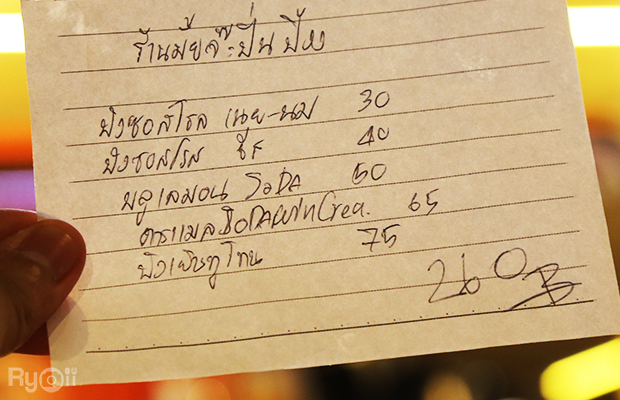 ร้านมัยจ๊ะปิ่น ปัง
ปังซอสโรล เนย-นม 30
ปังซอสโรส ชีส 40
บลูเลมอน SODA 50
คาราเมล SODA Whip Crea. 65
ปังเย็นทูโทน 75
260 B
Ryoii